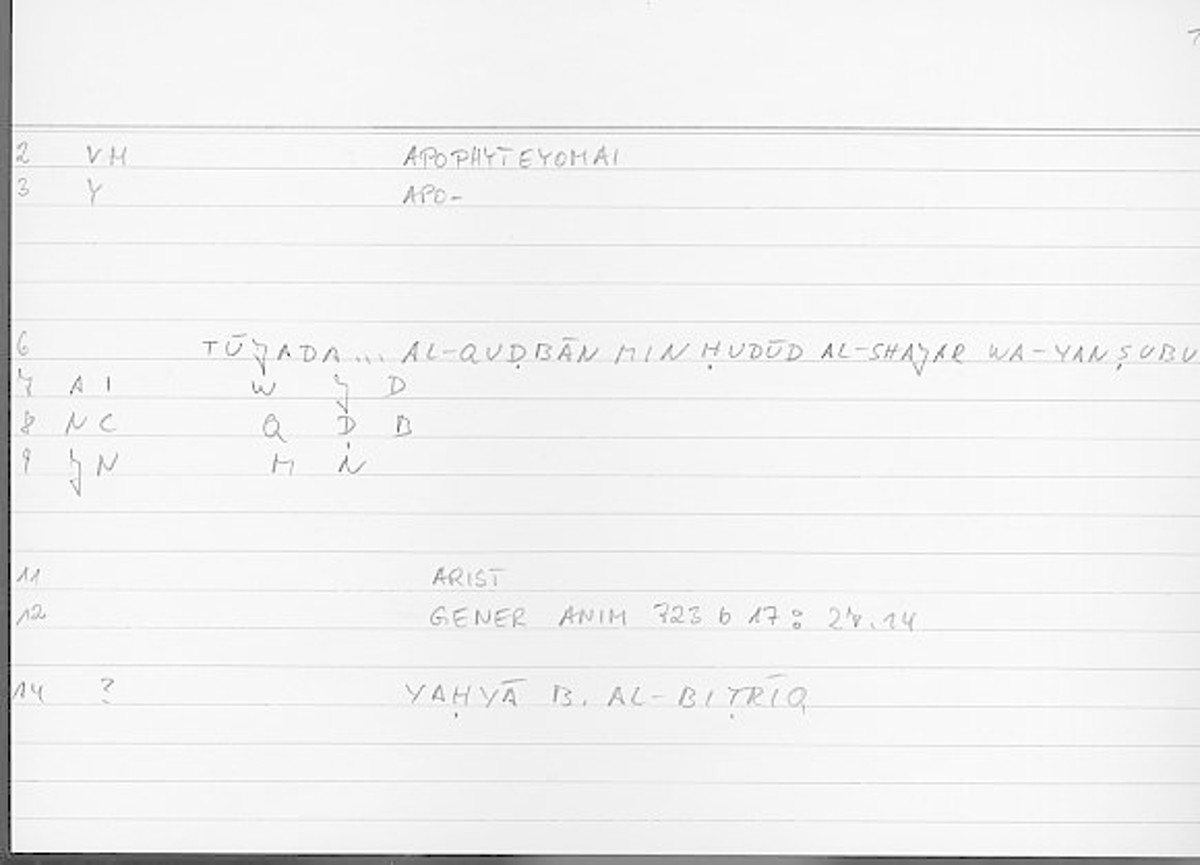 2 VM APOPHYTEYOMAI
3 Y APO-
6 TŪJADA... AL-QUḌBĀN MIN ḤUDŪD AL-SHAJAR WA-YANṢUBU
7 A I W J D
8 N C Q Ḍ B
9 J N M N
11 ARIST
12 GENER ANIM 723 b 17 : 27.14
14 ? YAḤYĀ B. AL-BIṬRĪQ